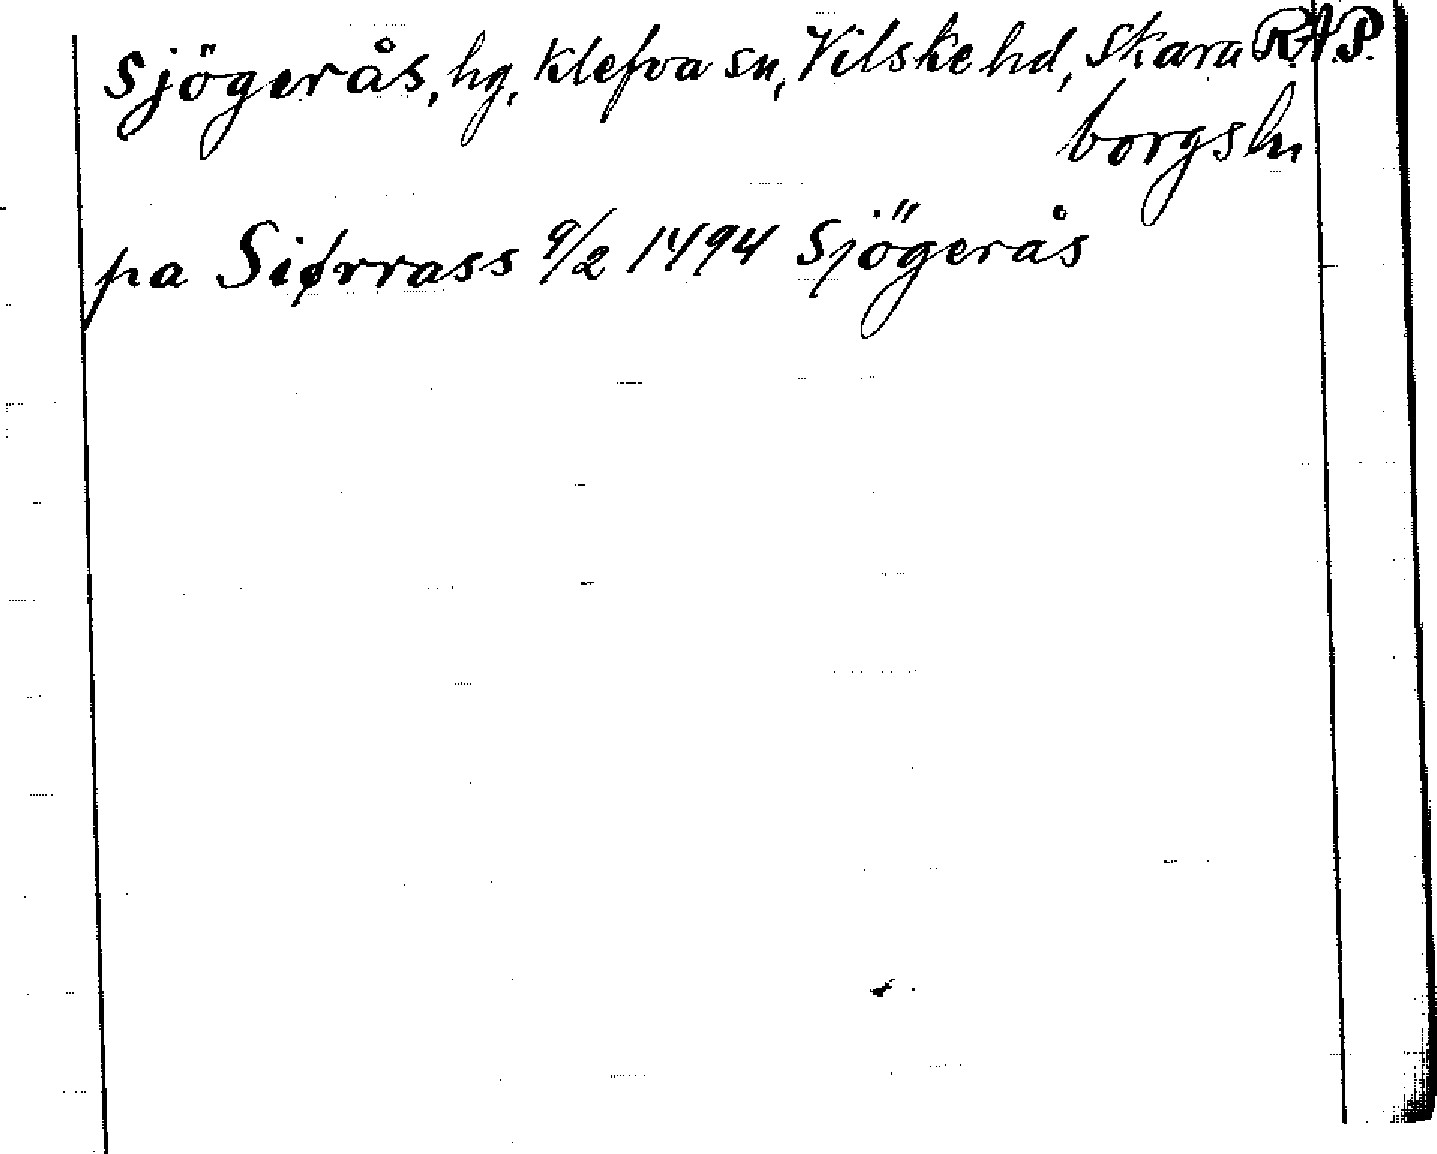 Sjögerås, hg, Klefva sn, Vilske hd, Skara R.A.P.
borgs ln
pa Siørrass 9/2 1494 Sjögerås